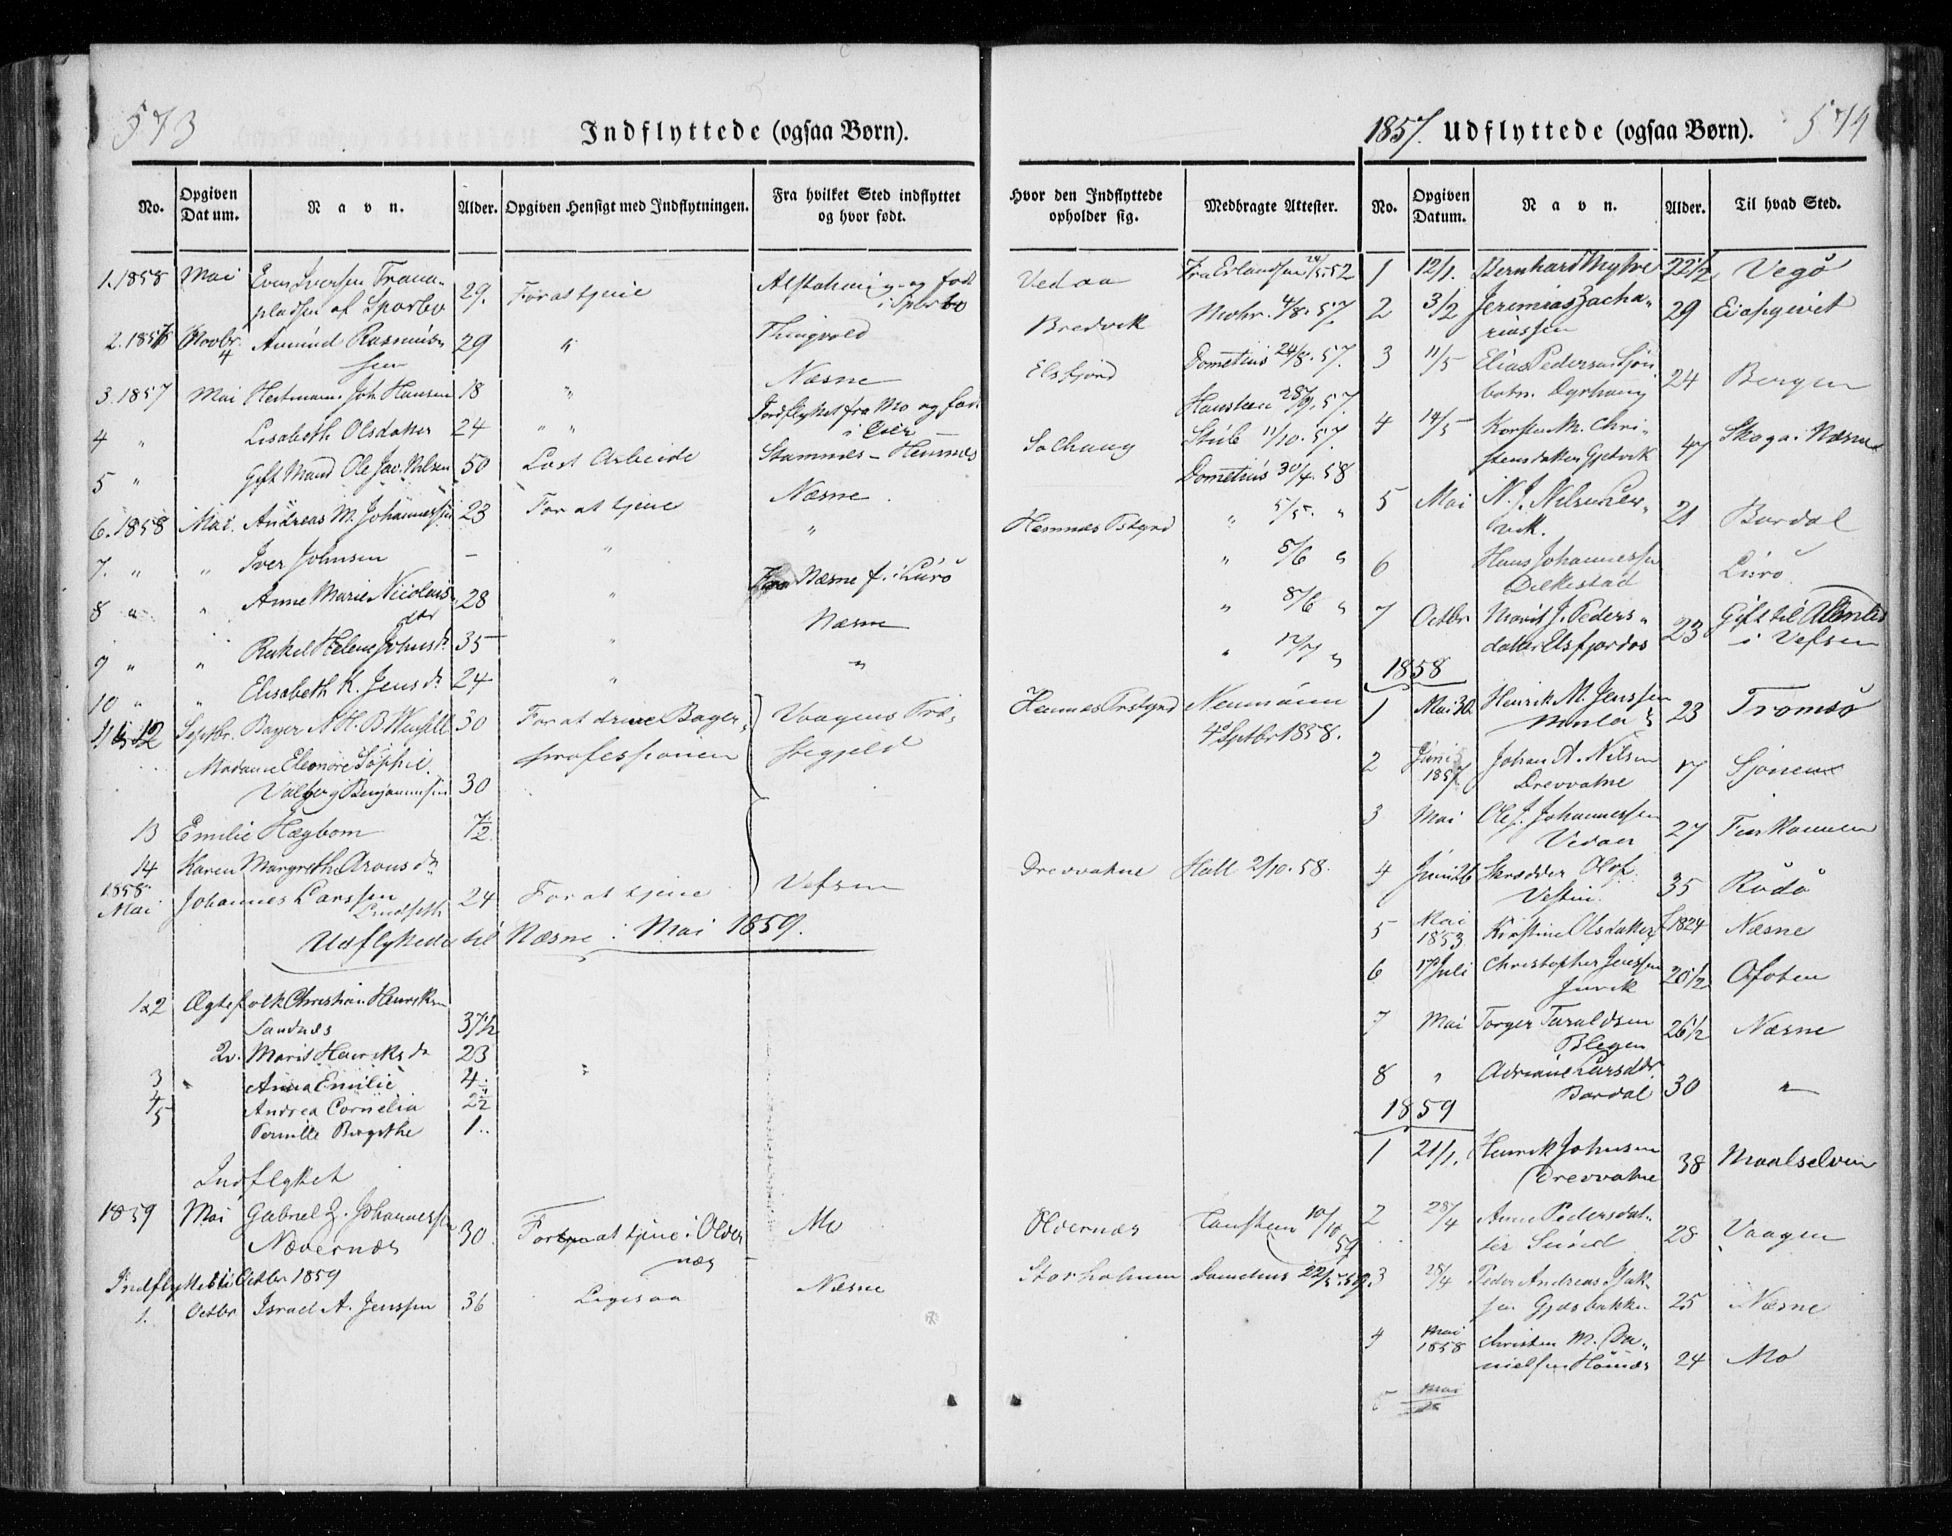 573
Indflyttede (ogsaa Børn).
No.
Opgiven Datum.
Navn.
Alder.
Opgiven Hensigt med Indflytningen.
Fra hvilket Sted indflyttet og hvor født.
1. 1858 Mai Even Iversen 29. For at tjene
pladsen af Sparbo
2. 185 Novbr. 4 Amund Rasmus- 29 " Thingvold
sen
3. 1857 Mai Hertman Joh. Hansen 18 " Næsne
4 " Lisabeth Olsdatter 24 " " Indflyttet fra Mo og født
i
5 " Gift Mand Ole Jac. Nilsen 50 Løst Arbeide Stamnes - Hemnes
6. 1858 Mai. Andreas M. Johannessen 23 For at tjene Næsne.
7. " " Iver Johnsen - " "
8 " " Anne Marie Nicolais- 28 " Fra Næsne f. i Lurø
dtr
9 " " Rakel Helene Johnsd. 35 " Næsne
10 " " Elisabeth K. Jensd. 24 " "
11 12 Septbr. Bager N. H. B. 30 For at drive Bager- Vaagens Præ-
professionen stegjeld
Madame Eleonore Sophie
Valborg Benjaminsen 30
13 Emilie Hægbom 7/2
14 Karen Margrethe Aronsd.
1858
Mai Johannes Larssen 24 For at tjene Vefsen
Lindseth
Udflyttede til Næsne i Mai 1859.
1 2 Ægtefolk Christian Henriksen
Sandnæs 37 1/2
2. Marit Henriksd. 23
3 Anna Emilie 4
4 Andrea Cornelia 2 1/2
5 Pernille Birgitthe 1
Indflyttet
1859 Mai Gabriel Z. Johannessen 30. For at tjene i Older Mo
Nævernæs næs
Indflyttet i Octbr 1859
1. Octbr Israel A. Jenssen 36 Ligesaa Næsne
Hvor den Indflyttede opholder sig.
Medbragte Attester.
Vedaa Fra Erlandsen 24/5 52
Bredvik Mohr. 4/8. 57.
Elsfjord Dometius 24/8. 57.
Hansteen 28/9. 57.
Solhaug Stub 11/10. 57.
Dometius 30/4. 58
Hemnæs Pstgrd " 5/5. "
" 5/6 "
" 8/6 "
" 12/7 "
Hemnes Prstgrd Neumann
4 Septbr 1858.
Drevvatne Hall 2/10. 58.
Oldernæs Hansteen 10/10
59
Storholmen Dometius 22/5. 59.
1857. Udflyttede (ogsaa Børn).
574
No.
Opgiven Datum.
Navn.
Alder.
Til hvad Sted.
1 12/1. Bernhard 22 1/2 Vegø
2 3/2 Jeremias Zacha- 29
riassen
3 11/5 Elias Pedersen 24 Bergen
Dyrhaug
4 14/5 Karsten M. Chri- 47 Skoga i Næsne
stensdatter Gjetvik
5 Mai N. J. Nilsen Ler- 21 Bardal
vik.
6 Hans Johannessen Lurø
Dilkestad
7 Octbr Marit J. Peders- 23 Gift til
datter Elsfjordos i Vefsen
1858
1 Mai 30 Henrik M. Jenssen 23 Tromsø
2 Juni 1857 Johan A. Nilsen 17 Sjonen
Drevvatne
3 Mai Ole J. Johannessen 27 Finkonnen
Vedaa
4 Juni 26 Skrædder Olof 35 Rødø
Vestin.
5 Mai 1853 Kirstine Olsdatter f. 1824 Næsne
6 17 Juli Christopher Jenssen 20 1/2 Ofoten
Juvik
7 Mai Torger Taraldsen 26 1/2 Næsne
Blegen
8 " Adriane Larsdtr. 30 "
Bardal
1859
1 21/1. Henrik Johnsen 38 Maalselven
Drevvatne
2 28/4 Anne Pedersdat- 28 Vaagen
ter Sund
3 28/4 Peder Andreas Isak- 25 Næsne
sen Gjæsbakke
4 Mai 1858 Christen M. Da- 24 Mo
nielsen
5 Mai